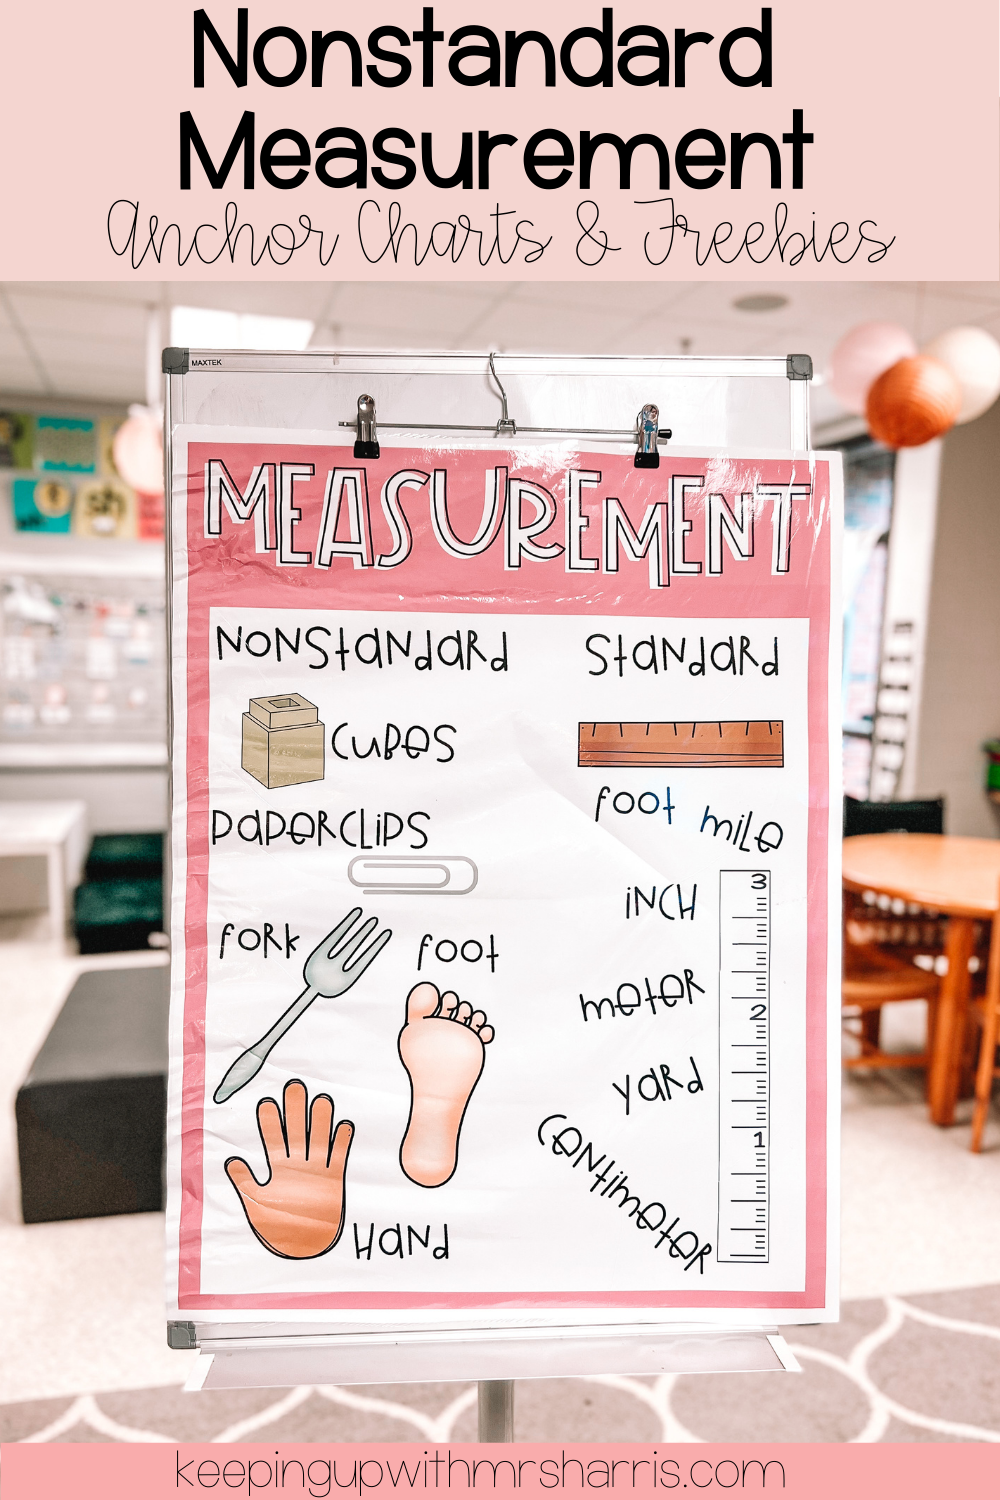 Nonstandard
Measurement
Anchor Charts & Freebies
MAXTEK
MEASUREMENT
NONStaNdaRd
StaNdaRd
CUBeS
foot mile
PaPeRCLiPS
iNCH
3
foRk
foot
meteR
2
yaRd
1
CeNtimeteR
HaNd
keepingupwithmrsharris.com